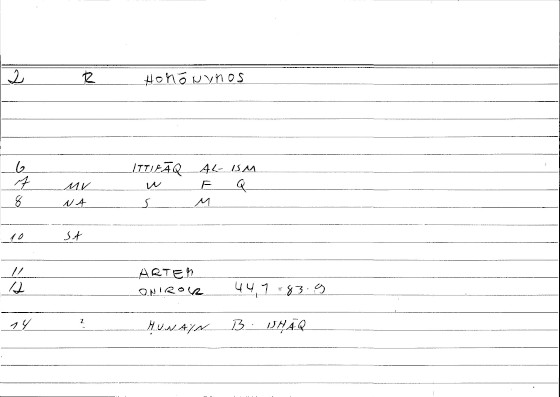 2 R HOMŌNYMOS
6 ITTIFĀQ AL-ISM
7 MV W F Q
8 NA S M
10 SA
11 ARTEM
12 ONIROCR 44,7 = 83.9
14 ? ḤUNAYN B. ISḤĀQ